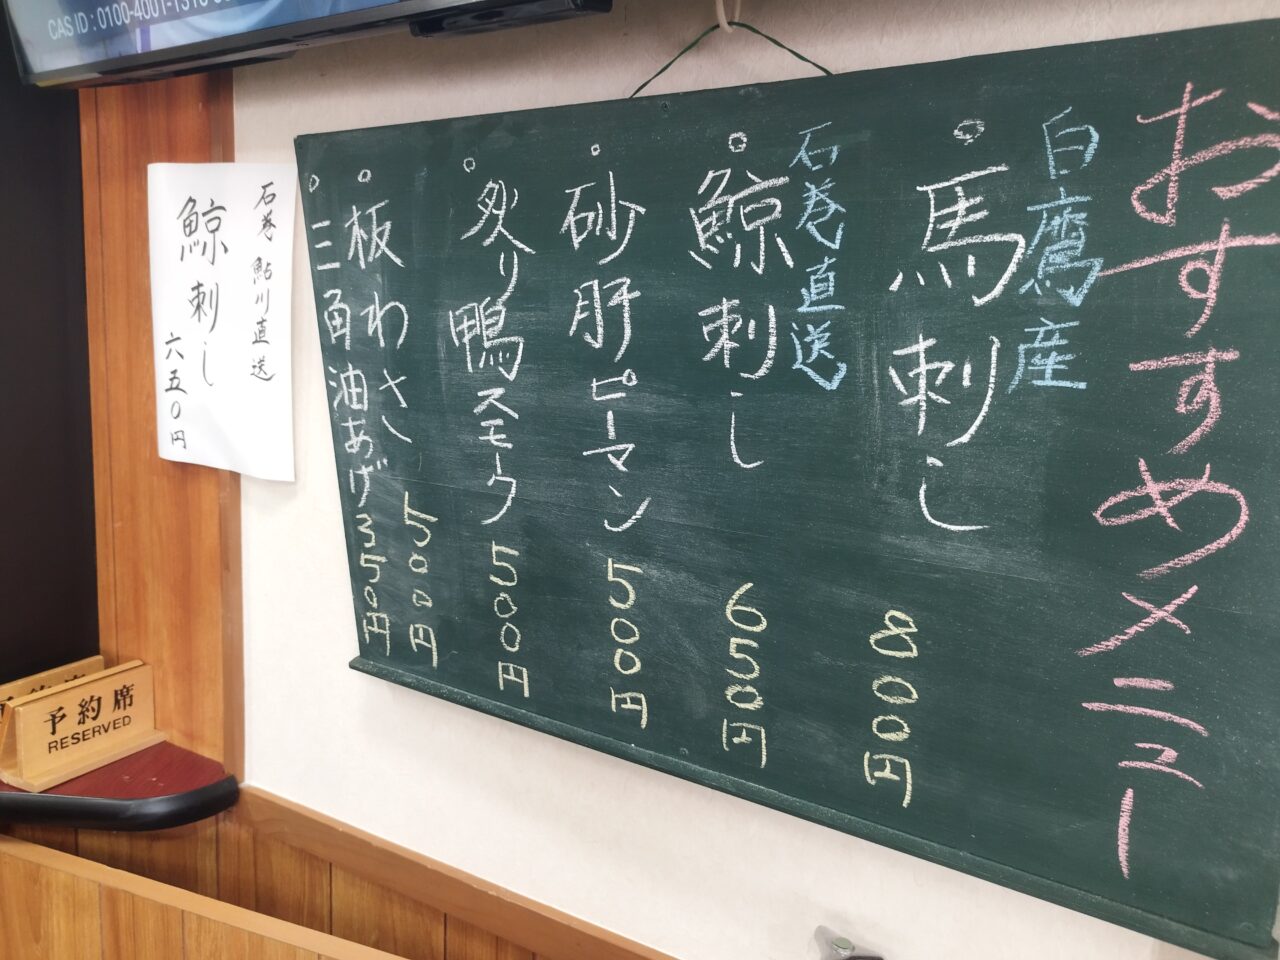 CAS ID : 0100-4001-1
おすすめメニュー
白鷹産
馬刺し 800円
石巻直送
鯨刺し 650円
砂肝ピーマン 500円
炙り鴨スモーク 500円
板わさ 500円
三角油あげ 350円
石巻 鮎川直送
鯨刺し
六五〇円
予約席
RESERVED